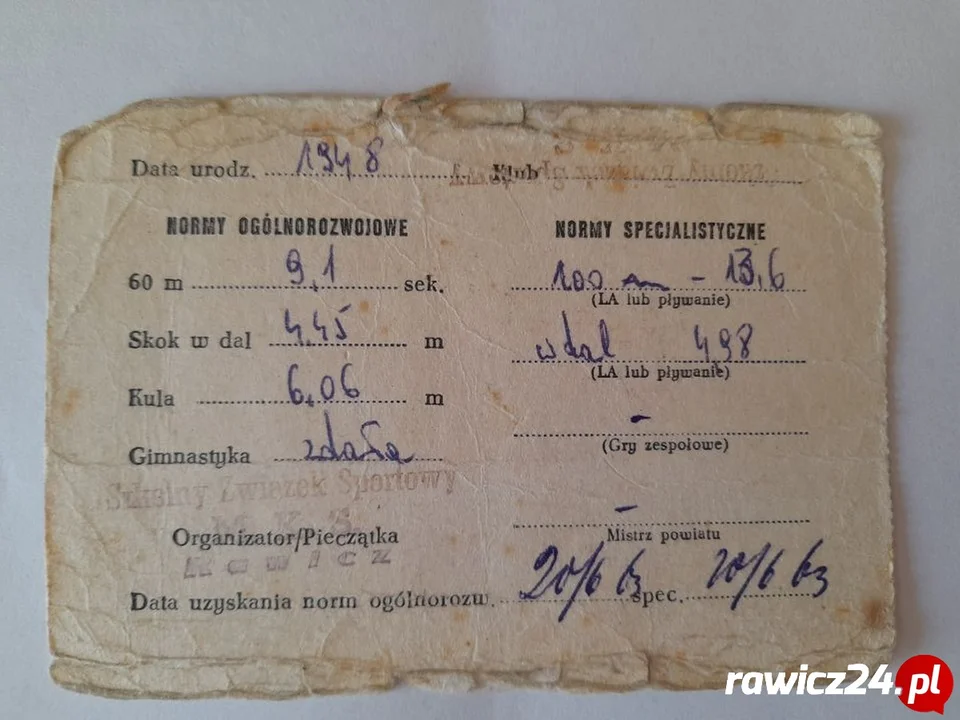 Data urodz. 1948 Klub
NORMY OGÓLNOROZWOJOWE
60 m 9,1 sek.
Skok w dal 4,45 m
Kula 6,06 m
Gimnastyka zdała
Szkolny Związek Sportowy
M.K.S.
Organizator/Pieczątka
Rawicz
NORMY SPECJALISTYCZNE
100 m - 13,6
(LA lub pływanie)
w dal 4,98
(LA lub pływanie)
-
(Gry zespołowe)
-
Mistrz powiatu
Data uzyskania norm ogólnorozw. 20/6 63 spec. 20/6 63
rawicz24.pl